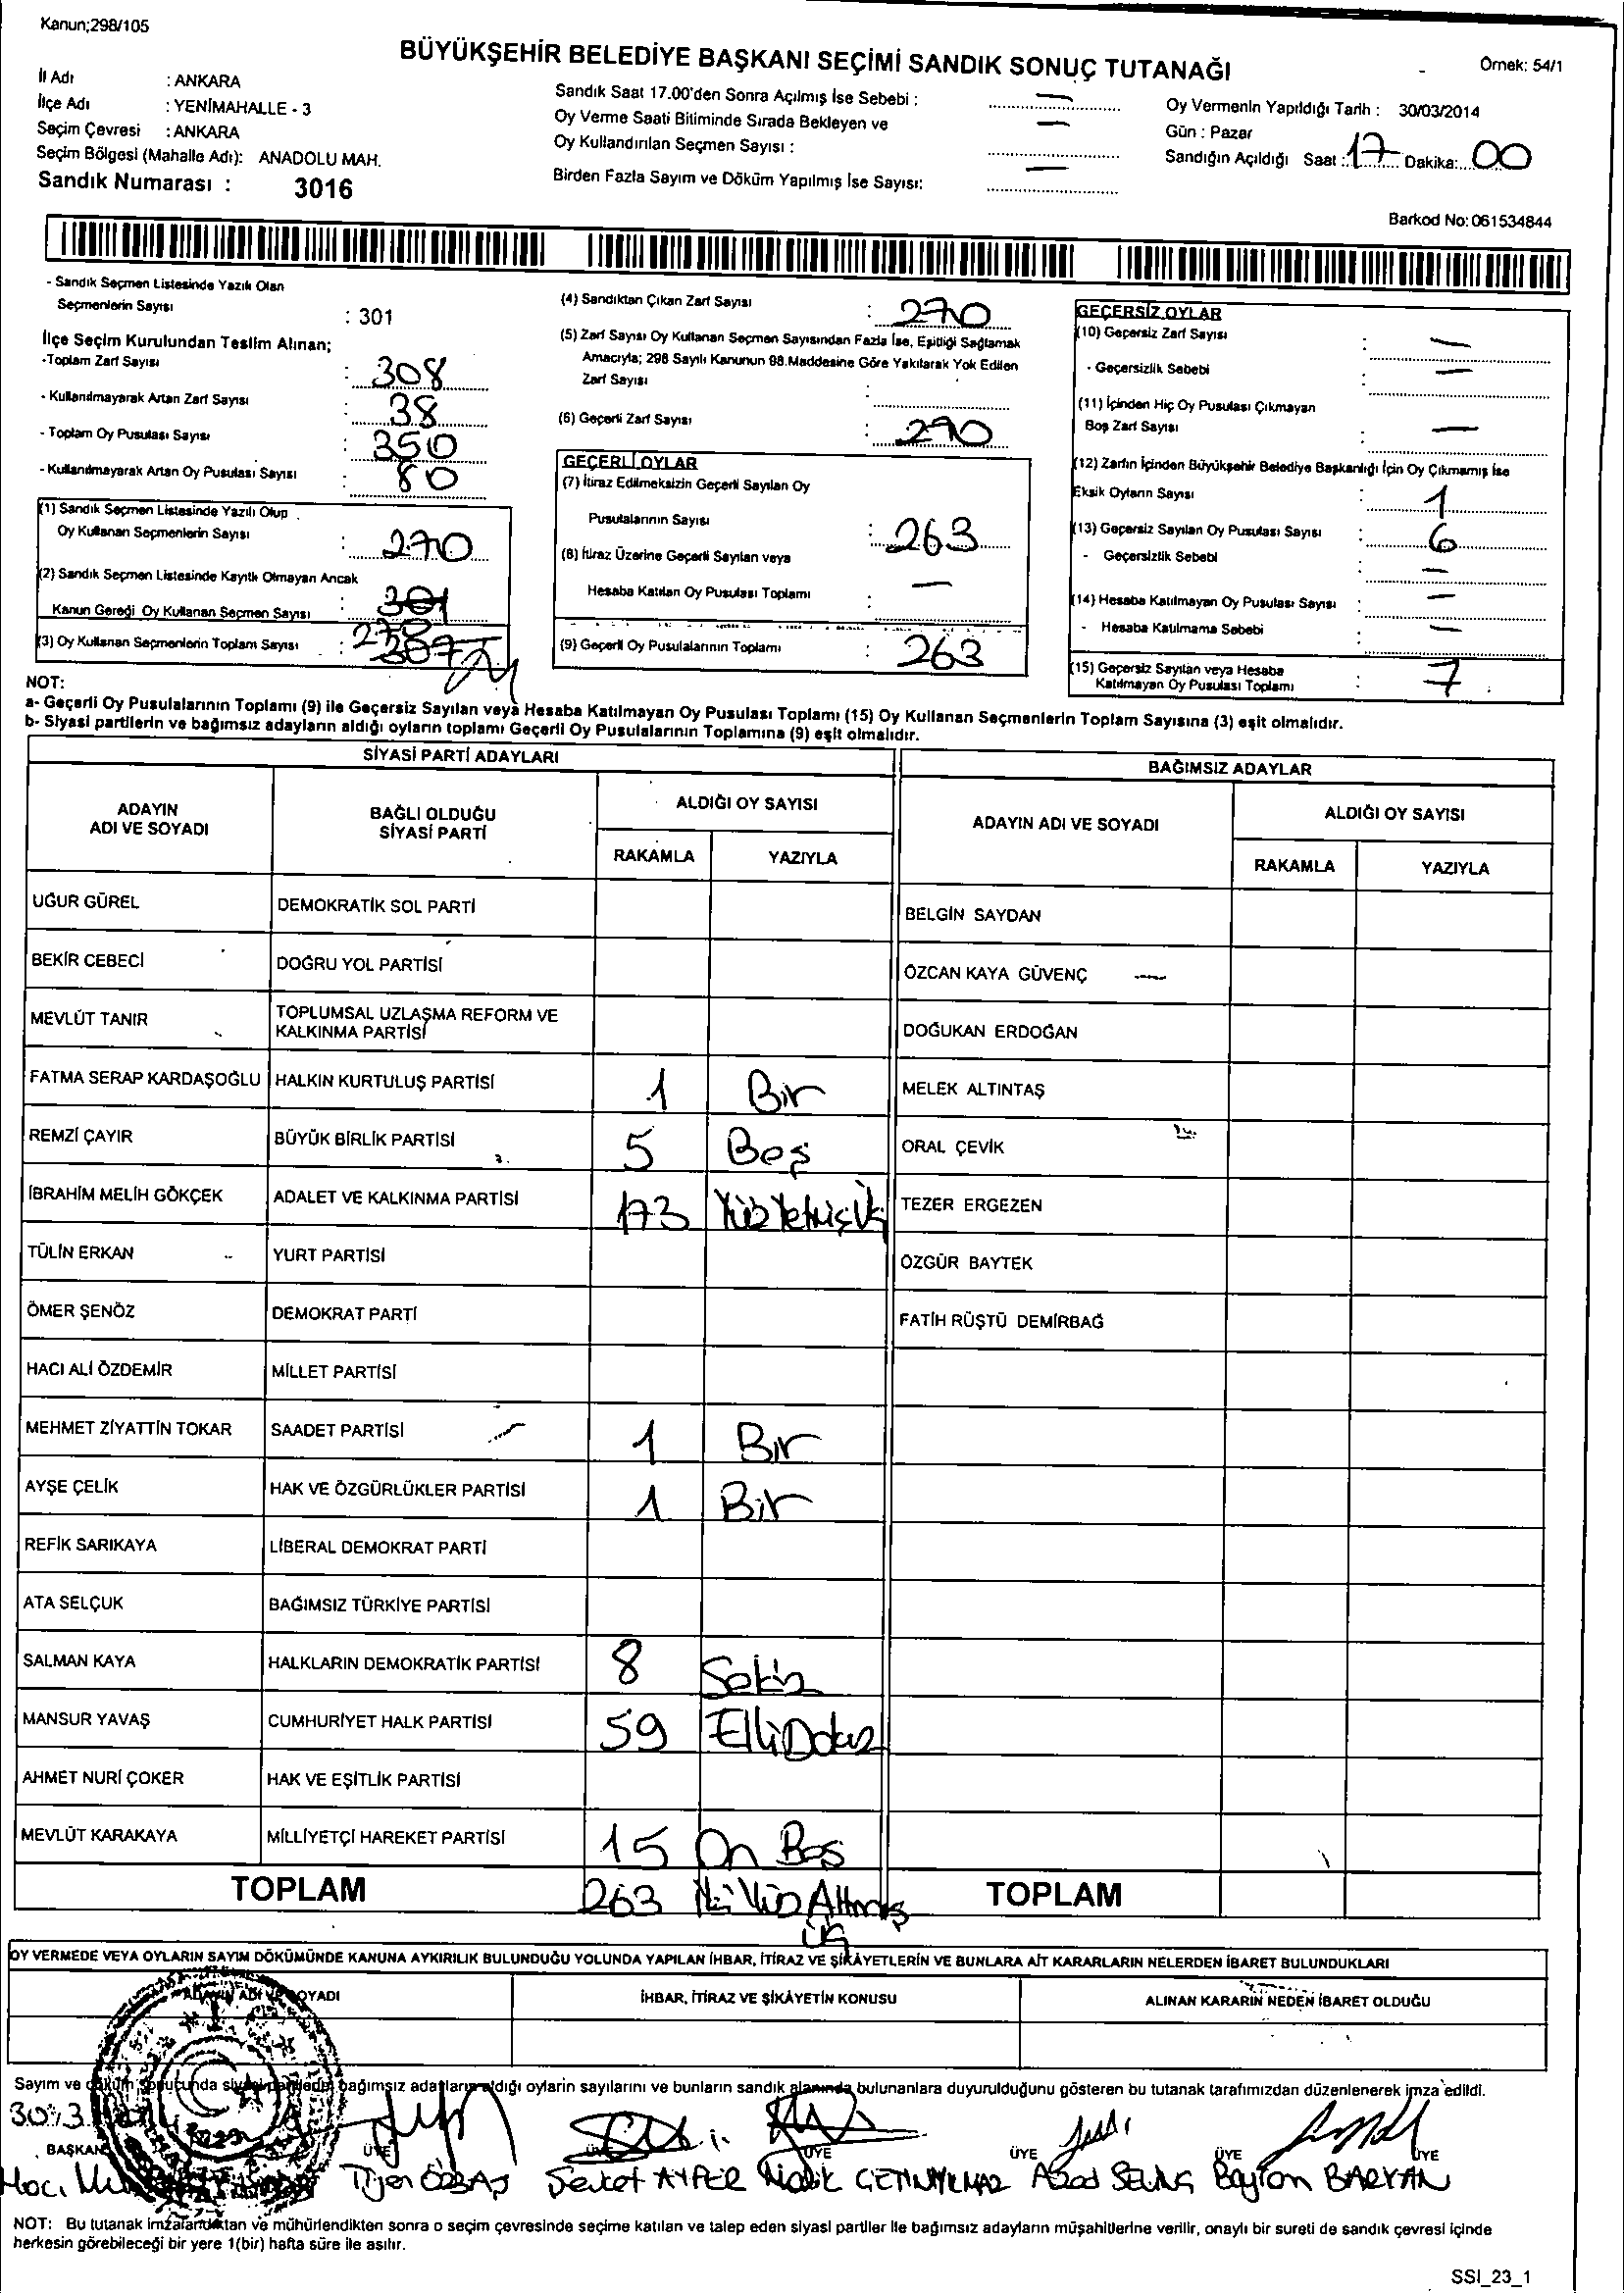 Kanun;298/105
BÜYÜKŞEHİR BELEDİYE BAŞKANI SEÇİMİ SANDIK SONUÇ TUTANAĞI
Örnek: 54/1
İl Adı : ANKARA
İlçe Adı : YENİMAHALLE - 3
Seçim Çevresi : ANKARA
Seçim Bölgesi (Mahalle Adı): ANADOLU MAH.
Sandık Numarası : 3016
Sandık Saat 17.00'den Sonra Açılmış İse Sebebi : —
Oy Verme Saati Bitiminde Sırada Bekleyen ve
Oy Kullandırılan Seçmen Sayısı : —
Birden Fazla Sayım ve Döküm Yapılmış İse Sayısı: —
Oy Vermenin Yapıldığı Tarih : 30/03/2014
Gün : Pazar
Sandığın Açıldığı Saat : 17 Dakika: 00
Barkod No: 061534844
- Sandık Seçmen Listesinde Yazılı Olan
Seçmenlerin Sayısı : 301
İlçe Seçim Kurulundan Teslim Alınan;
-Toplam Zarf Sayısı : 308
- Kullanılmayarak Artan Zarf Sayısı : 38
- Toplam Oy Pusulası Sayısı : 350
- Kullanılmayarak Artan Oy Pusulası Sayısı : 80
(1) Sandık Seçmen Listesinde Yazılı Olup
Oy Kullanan Seçmenlerin Sayısı : 270
(2) Sandık Seçmen Listesinde Kayıtlı Olmayan Ancak
Kanun Gereği Oy Kullanan Seçmen Sayısı : 301
(3) Oy Kullanan Seçmenlerin Toplam Sayısı :
(4) Sandıktan Çıkan Zarf Sayısı : 270
(5) Zarf Sayısı Oy Kullanan Seçmen Sayısından Fazla İse, Eşitliği Sağlamak
Amacıyla; 298 Sayılı Kanunun 98.Maddesine Göre Yakılarak Yok Edilen
Zarf Sayısı :
(6) Geçerli Zarf Sayısı : 270
GEÇERLİ OYLAR
(7) İtiraz Edilmeksizin Geçerli Sayılan Oy
Pusulalarının Sayısı : 263
(8) İtiraz Üzerine Geçerli Sayılan veya
Hesaba Katılan Oy Pusulası Toplamı : —
(9) Geçerli Oy Pusulalarının Toplamı : 263
GEÇERSİZ OYLAR
(10) Geçersiz Zarf Sayısı : —
- Geçersizlik Sebebi : —
(11) İçinden Hiç Oy Pusulası Çıkmayan
Boş Zarf Sayısı : —
(12) Zarfın İçinden Büyükşehir Belediye Başkanlığı İçin Oy Çıkmamış İse
Eksik Oyların Sayısı : 1
(13) Geçersiz Sayılan Oy Pusulası Sayısı : 6
- Geçersizlik Sebebi : —
(14) Hesaba Katılmayan Oy Pusulası Sayısı : —
- Hesaba Katılmama Sebebi : —
(15) Geçersiz Sayılan veya Hesaba
Katılmayan Oy Pusulası Toplamı : 7
NOT:
a- Geçerli Oy Pusulalarının Toplamı (9) ile Geçersiz Sayılan veya Hesaba Katılmayan Oy Pusulası Toplamı (15) Oy Kullanan Seçmenlerin Toplam Sayısına (3) eşit olmalıdır.
b- Siyasi partilerin ve bağımsız adayların aldığı oyların toplamı Geçerli Oy Pusulalarının Toplamına (9) eşit olmalıdır.
SİYASİ PARTİ ADAYLARI
ADAYIN ADI VE SOYADI BAĞLI OLDUĞU SİYASİ PARTİ ALDIĞI OY SAYISI
RAKAMLA YAZIYLA
UĞUR GÜREL DEMOKRATİK SOL PARTİ
BEKİR CEBECİ DOĞRU YOL PARTİSİ
MEVLÜT TANIR TOPLUMSAL UZLAŞMA REFORM VE KALKINMA PARTİSİ
FATMA SERAP KARDAŞOĞLU HALKIN KURTULUŞ PARTİSİ 1 Bir
REMZİ ÇAYIR BÜYÜK BİRLİK PARTİSİ 5 Beş
İBRAHİM MELİH GÖKÇEK ADALET VE KALKINMA PARTİSİ 173 YüzYetmişÜç
TÜLİN ERKAN YURT PARTİSİ
ÖMER ŞENÖZ DEMOKRAT PARTİ
HACI ALİ ÖZDEMİR MİLLET PARTİSİ
MEHMET ZİYATTİN TOKAR SAADET PARTİSİ 1 Bir
AYŞE ÇELİK HAK VE ÖZGÜRLÜKLER PARTİSİ 1 Bir
REFİK SARIKAYA LİBERAL DEMOKRAT PARTİ
ATA SELÇUK BAĞIMSIZ TÜRKİYE PARTİSİ
SALMAN KAYA HALKLARIN DEMOKRATİK PARTİSİ 8 Sekiz
MANSUR YAVAŞ CUMHURİYET HALK PARTİSİ 59 ElliDokuz
AHMET NURİ ÇOKER HAK VE EŞİTLİK PARTİSİ
MEVLÜT KARAKAYA MİLLİYETÇİ HAREKET PARTİSİ 15 On Beş
TOPLAM 263 İki Yüz Altmış Üç
BAĞIMSIZ ADAYLAR
ADAYIN ADI VE SOYADI ALDIĞI OY SAYISI
RAKAMLA YAZIYLA
BELGİN SAYDAN
ÖZCAN KAYA GÜVENÇ
DOĞUKAN ERDOĞAN
MELEK ALTINTAŞ
ORAL ÇEVİK
TEZER ERGEZEN
ÖZGÜR BAYTEK
FATİH RÜŞTÜ DEMİRBAĞ
TOPLAM
OY VERMEDE VEYA OYLARIN SAYIM DÖKÜMÜNDE KANUNA AYKIRILIK BULUNDUĞU YOLUNDA YAPILAN İHBAR, İTİRAZ VE ŞİKÂYETLERİN VE BUNLARA AİT KARARLARIN NELERDEN İBARET BULUNDUKLARI
ADAYIN ADI VE SOYADI İHBAR, İTİRAZ VE ŞİKÂYETİN KONUSU ALINAN KARARIN NEDEN İBARET OLDUĞU
Sayım ve döküm sonucunda siyasi partilerin bağımsız adayların aldığı oyların sayılarını ve bunların sandık alanında bulunanlara duyurulduğunu gösteren bu tutanak tarafımızdan düzenlenerek imza edildi.
BAŞKAN ÜYE ÜYE ÜYE ÜYE ÜYE ÜYE
Şevket AYPER Bayram
NOT: Bu tutanak imzalandıktan ve mühürlendikten sonra o seçim çevresinde seçime katılan ve talep eden siyasi partiler ile bağımsız adayların müşahitlerine verilir, onaylı bir sureti de sandık çevresi içinde
herkesin görebileceği bir yere 1(bir) hafta süre ile asılır.
SSI_23_1